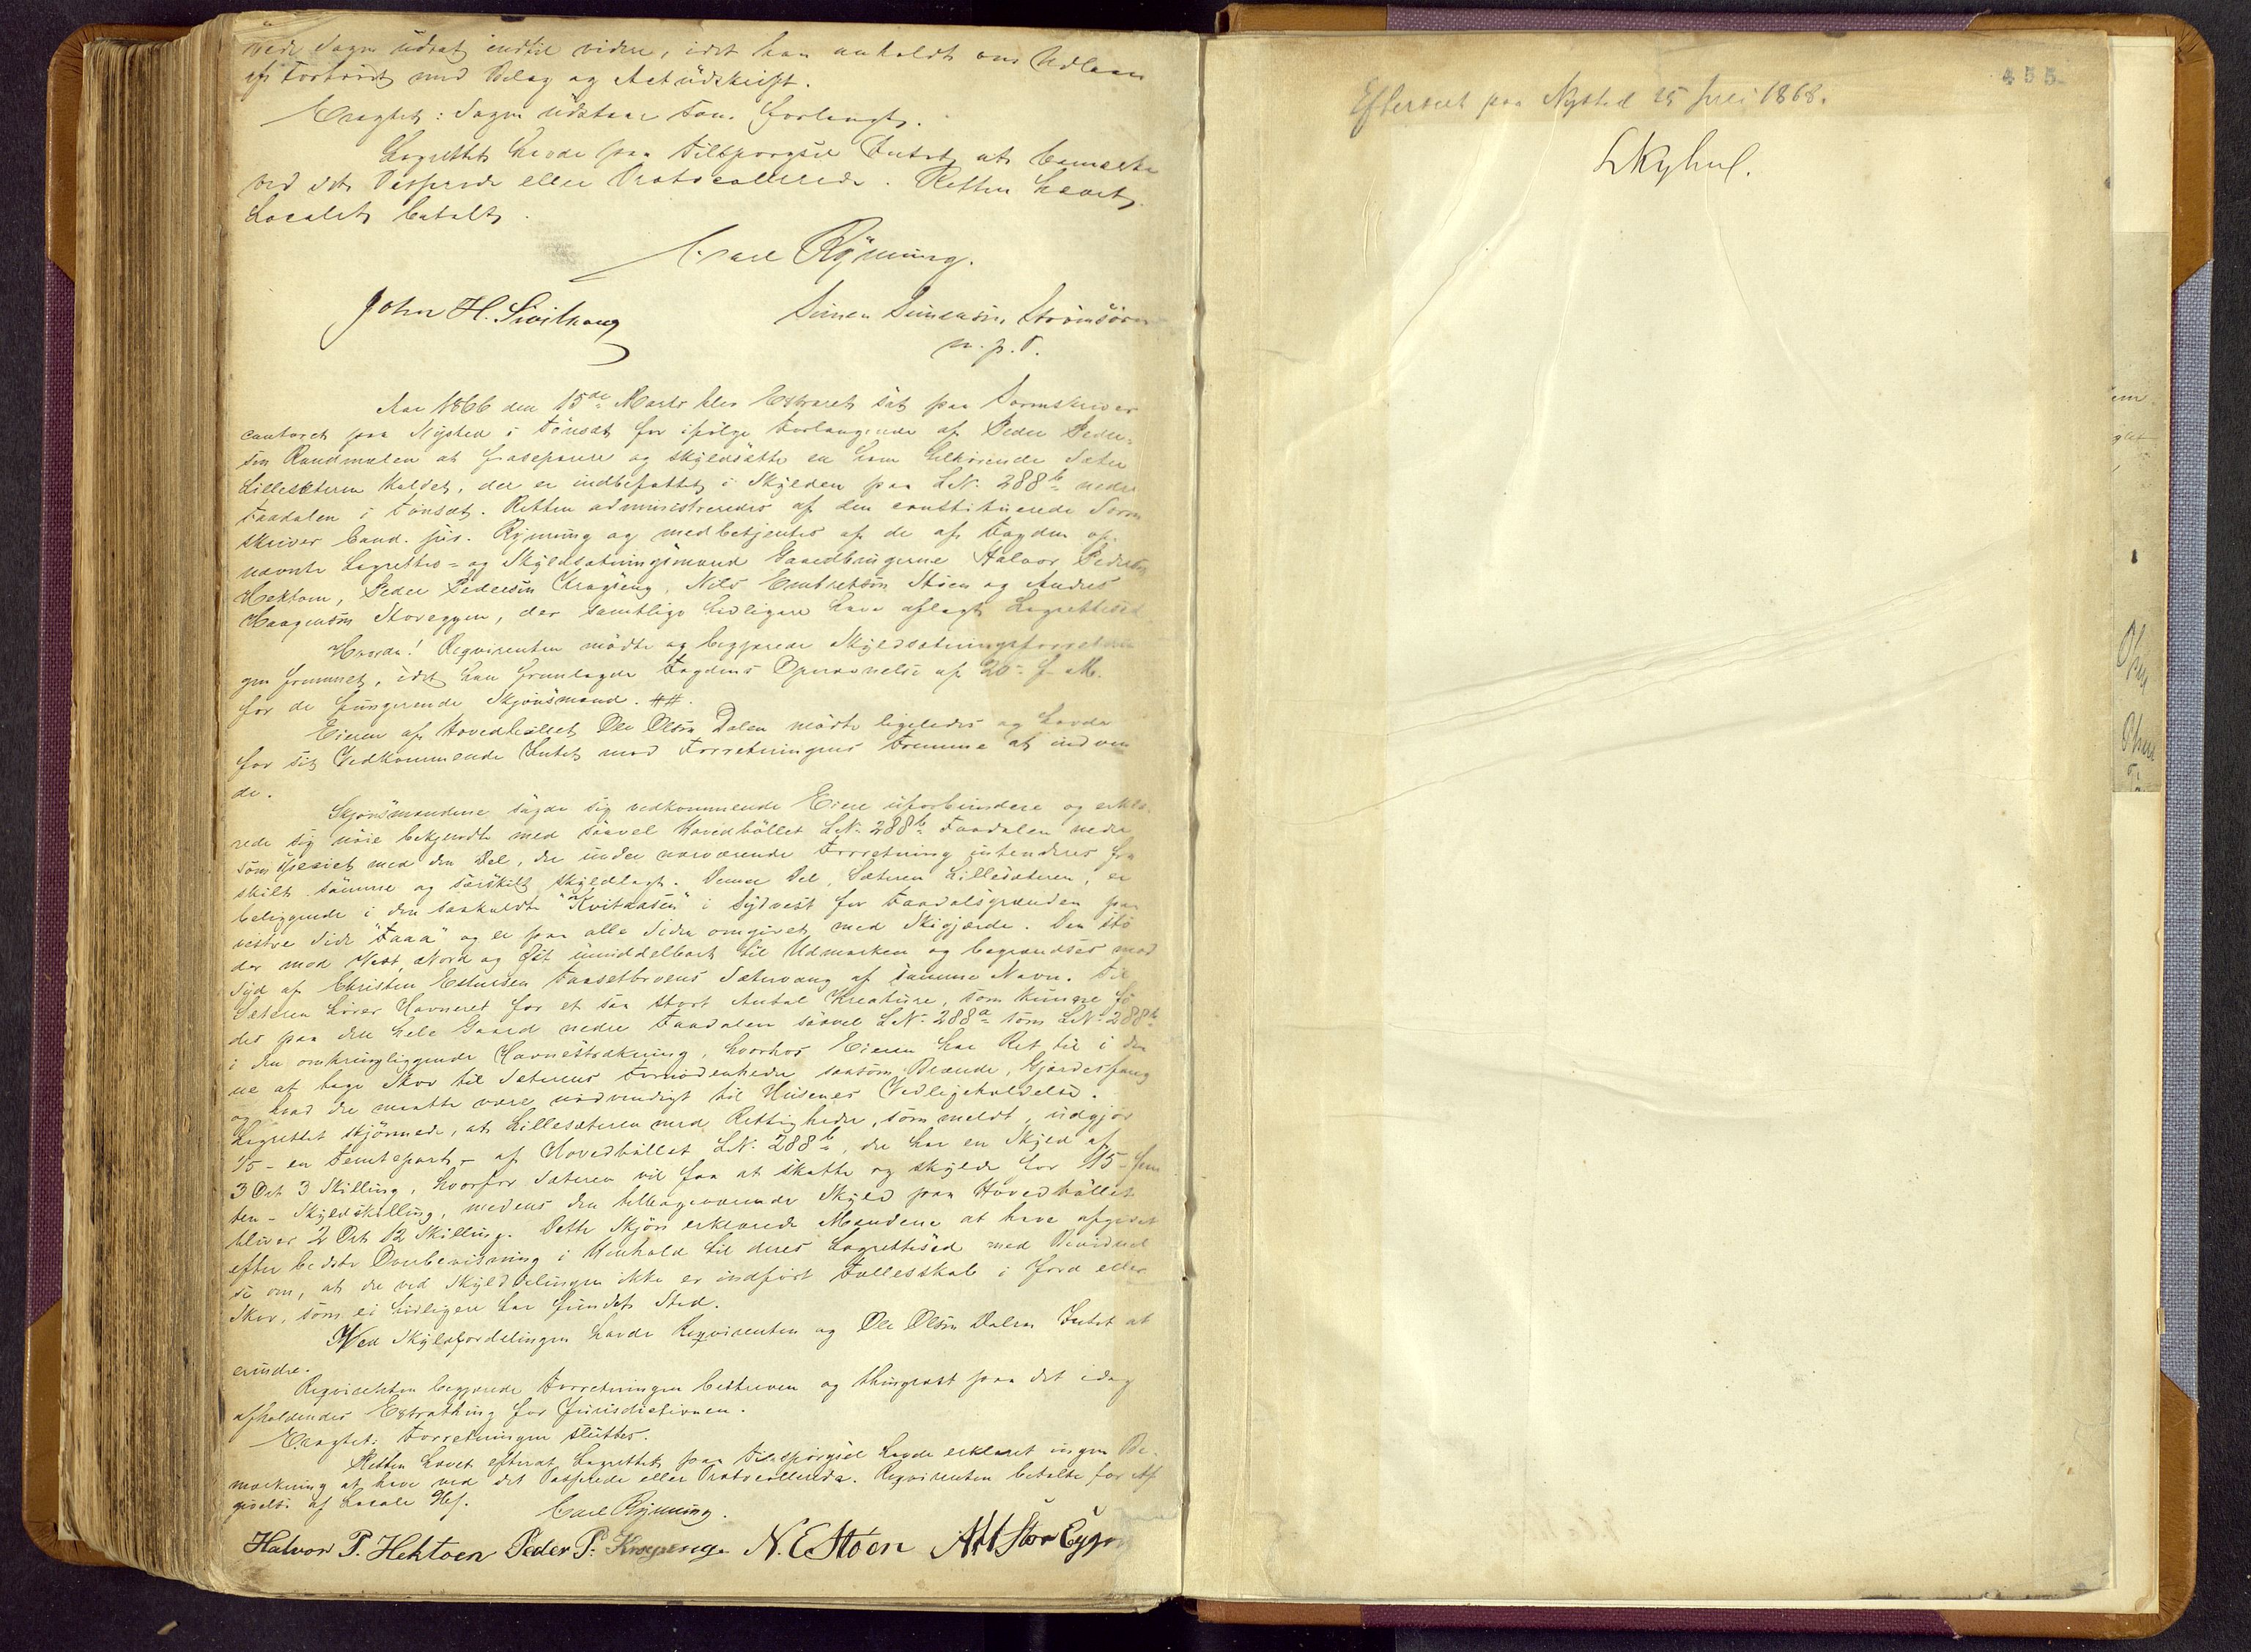 Sagen udsat indtil videre, idet han anholdt om Udlaan
af Forhöret med Bilag og Actudskrift.
Eragtet: Sagen udstaar som forlangt.
Lagrettet havde paa Tilspørgsel Intet at bemærke
ved det Passerede eller Protocollerede. Retten hævet.
Localet betalt.
Carl Rÿnning.
John H. Sivilhaug
Simen Simensen Strömsören
m. p. P.
Aar 1866 den 15de Marts blev Extraret sat paa Sorenskriver
contoret paa Nÿsted i Tönset for ifølge Forlangende af Peder Peder-
sen Randmælen at fraseparere og skÿldsætte en ham tilhørende Sæter
Lillesæteren kaldet, der er indbefattet i Skÿlden paa L.N. 288b nedre
Faadalen i Tönset. Retten administreredes af den constituerede Soren
skriver Cand. jur. Rÿnning og medbetjentes af de af Fogden op-
nævnte Lagrettes- og Skÿldsætningsmænd Gaardbrugerne Halvor Pedersen
Hektoen, Peder Pedersen Kragseng, Nils Embretsen Støen og Andres
Haagensen Storeggen, der samtlige tidligere have aflagt Lagrettesed
Hvorda! Reqvirenten mödte og begjærede Skÿldsætningsforretnin
gen fremmet, idet han fremlagde Fogdens Opnævnelse af 20- f. M.
for de fungerende Skjönsmænd. ##.
Eieren af Hovedbøllet Ole Olsen Dalen mödte ligeledes og havde
for sit Vedkommende Intet mod Forretningens Fremme at indven
de.
Skjönsmændene sagde sig vedkommende Eiere uforbundere og erklæ-
rede sig nöie bekjendte med saavel Hovedböllet L.N. 288b Faadalen nedre
som specielt med den Del, der under nærværende Forretning intenderes fra
skilt samme og særskilt skÿldlagt. Denne Del, Sæteren Lillesæteren, er
beliggende i den saakaldte "Kvitaasen" i Sÿdvest for Faadalsgrænden paa
vestre Side "Faaa" og er paa alle Sider omgivet med Skigjærde. Den stö
der mod Vest, Nord og Øst umiddelbart til Udmarken og begrændses mod
Sÿd af Christen Estensen Faasetbroens Sætervang af samme Navn. Til
Sæteren hører Havneret for et saa stort Antal Kreature, som kunne fö
des paa den hele Gaard nedre Faadalen saavel L.N. 288a som L.N. 288b
i den omkringliggende Havnestrækning, hvorhos Eieren har Ret til i den
ne at tage Skov til Sæterens Fornödenheder saasom Brænde, Gjærdesfang
og hvad der maatte være nödvendigt til Husenes Vedligeholdelse.
Lagrettet skjönnede, at Lillesæteren med Rettigheder, som meldt, udgjör
1/5 - en Femtepart - af Hovedböllet L.N. 288b, der har en Skÿld af
3 Ort 3 Skilling, hvorfor Sæteren vil faa at skatte og skÿlde for 15 - fem
ten - Skÿldskilling, medens den tilbageværende Skÿld paa Hovedböllet
bliver 2 Ort 12 Skilling. Dette Skjön erklærede Mændene at have afgivet
efter bedste Overbevisning i Henhold til deres Lagrettesed med Bevidsthed
se om, at der ved Skÿlddelingen ikke er indfört Fællesskab i Jord eller
Skov, som ei tidligere har fundet Sted.
Ved Skÿldfordelingen havde Reqvirenten og Ole Olsen Dalen Intet at
erindre.
Reqvirenten begjærede Forretningen beskreven og thinglæst paa det idag
afholdendes Extrathing for Jurisdictionen.
Eragtet: Forretningen sluttes.
Retten hævet efterat Lagrettet paa Tilspörgsel havde erklæret ingen Be-
mærkning at have ved det Passerede eller Protocollerede. Reqvirenten betalte for Af
givelse af Locale
Carl Rÿnning.
Halvor P. Hektoen Peder P. Kragsenge N. E. Stöen A H Stor Eggen
455
Efterseet paa Nysted 25 Juli 1868.